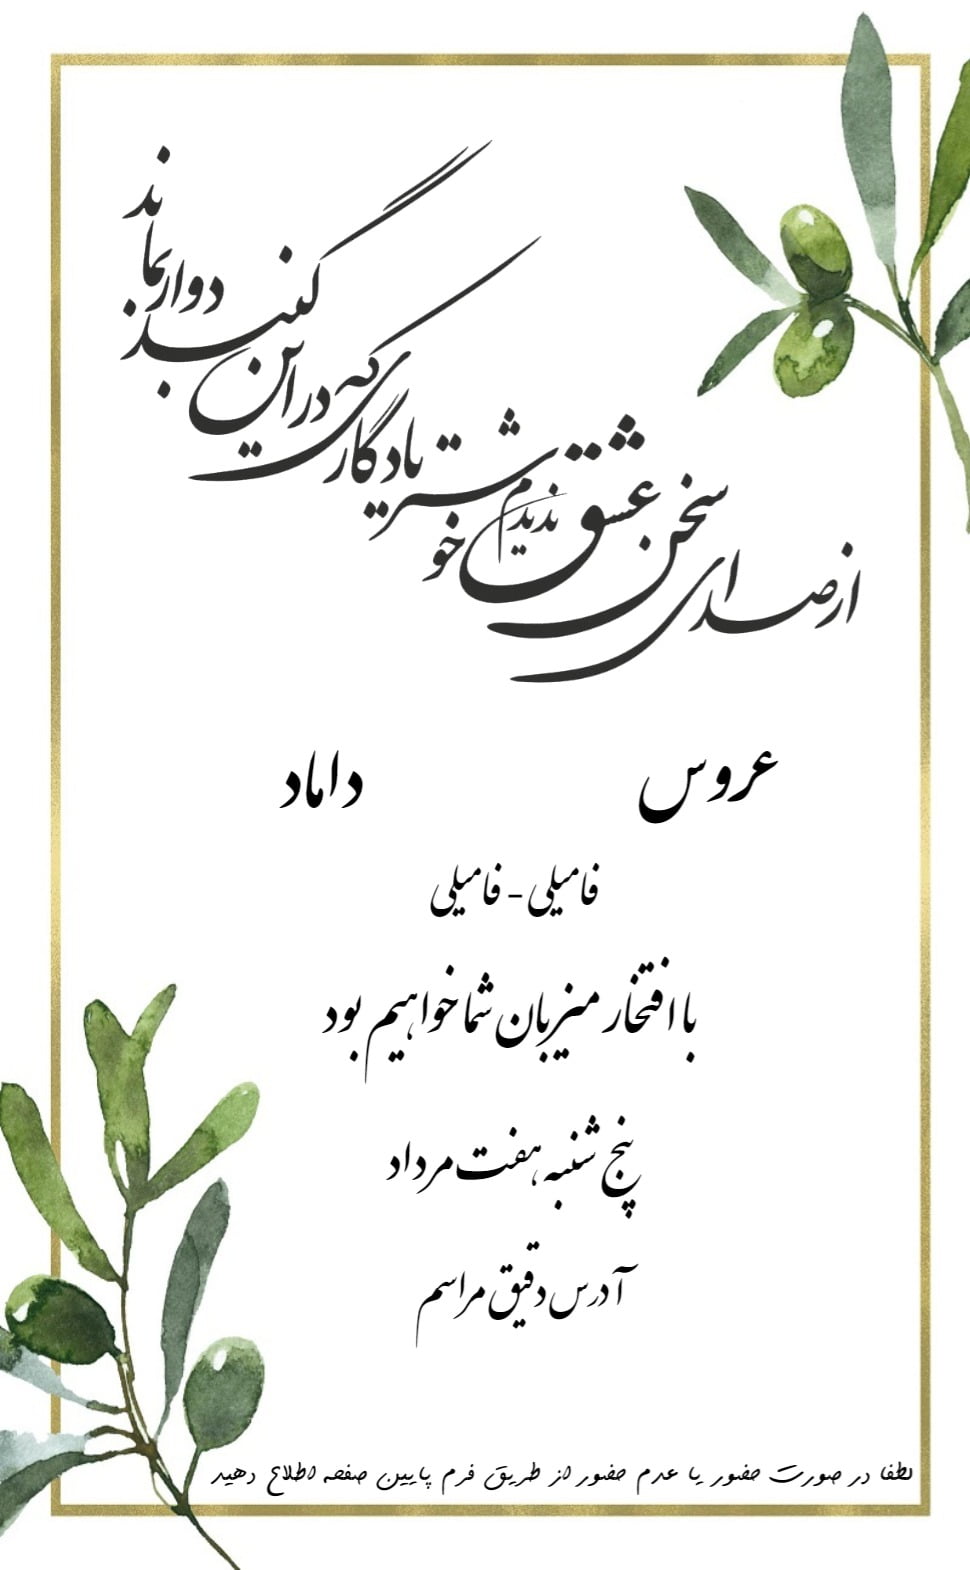 از صدای سخن عشق ندیدم خوشتر
یادگاری که در این گنبد دوار بماند
عروس داماد
فامیلی - فامیلی
با افتخار میزبان شما خواهیم بود
پنج شنبه هفت مرداد
آدرس دقیق مراسم
لطفا در صورت حضور یا عدم حضور از طریق فرم پایین صفحه اطلاع دهید